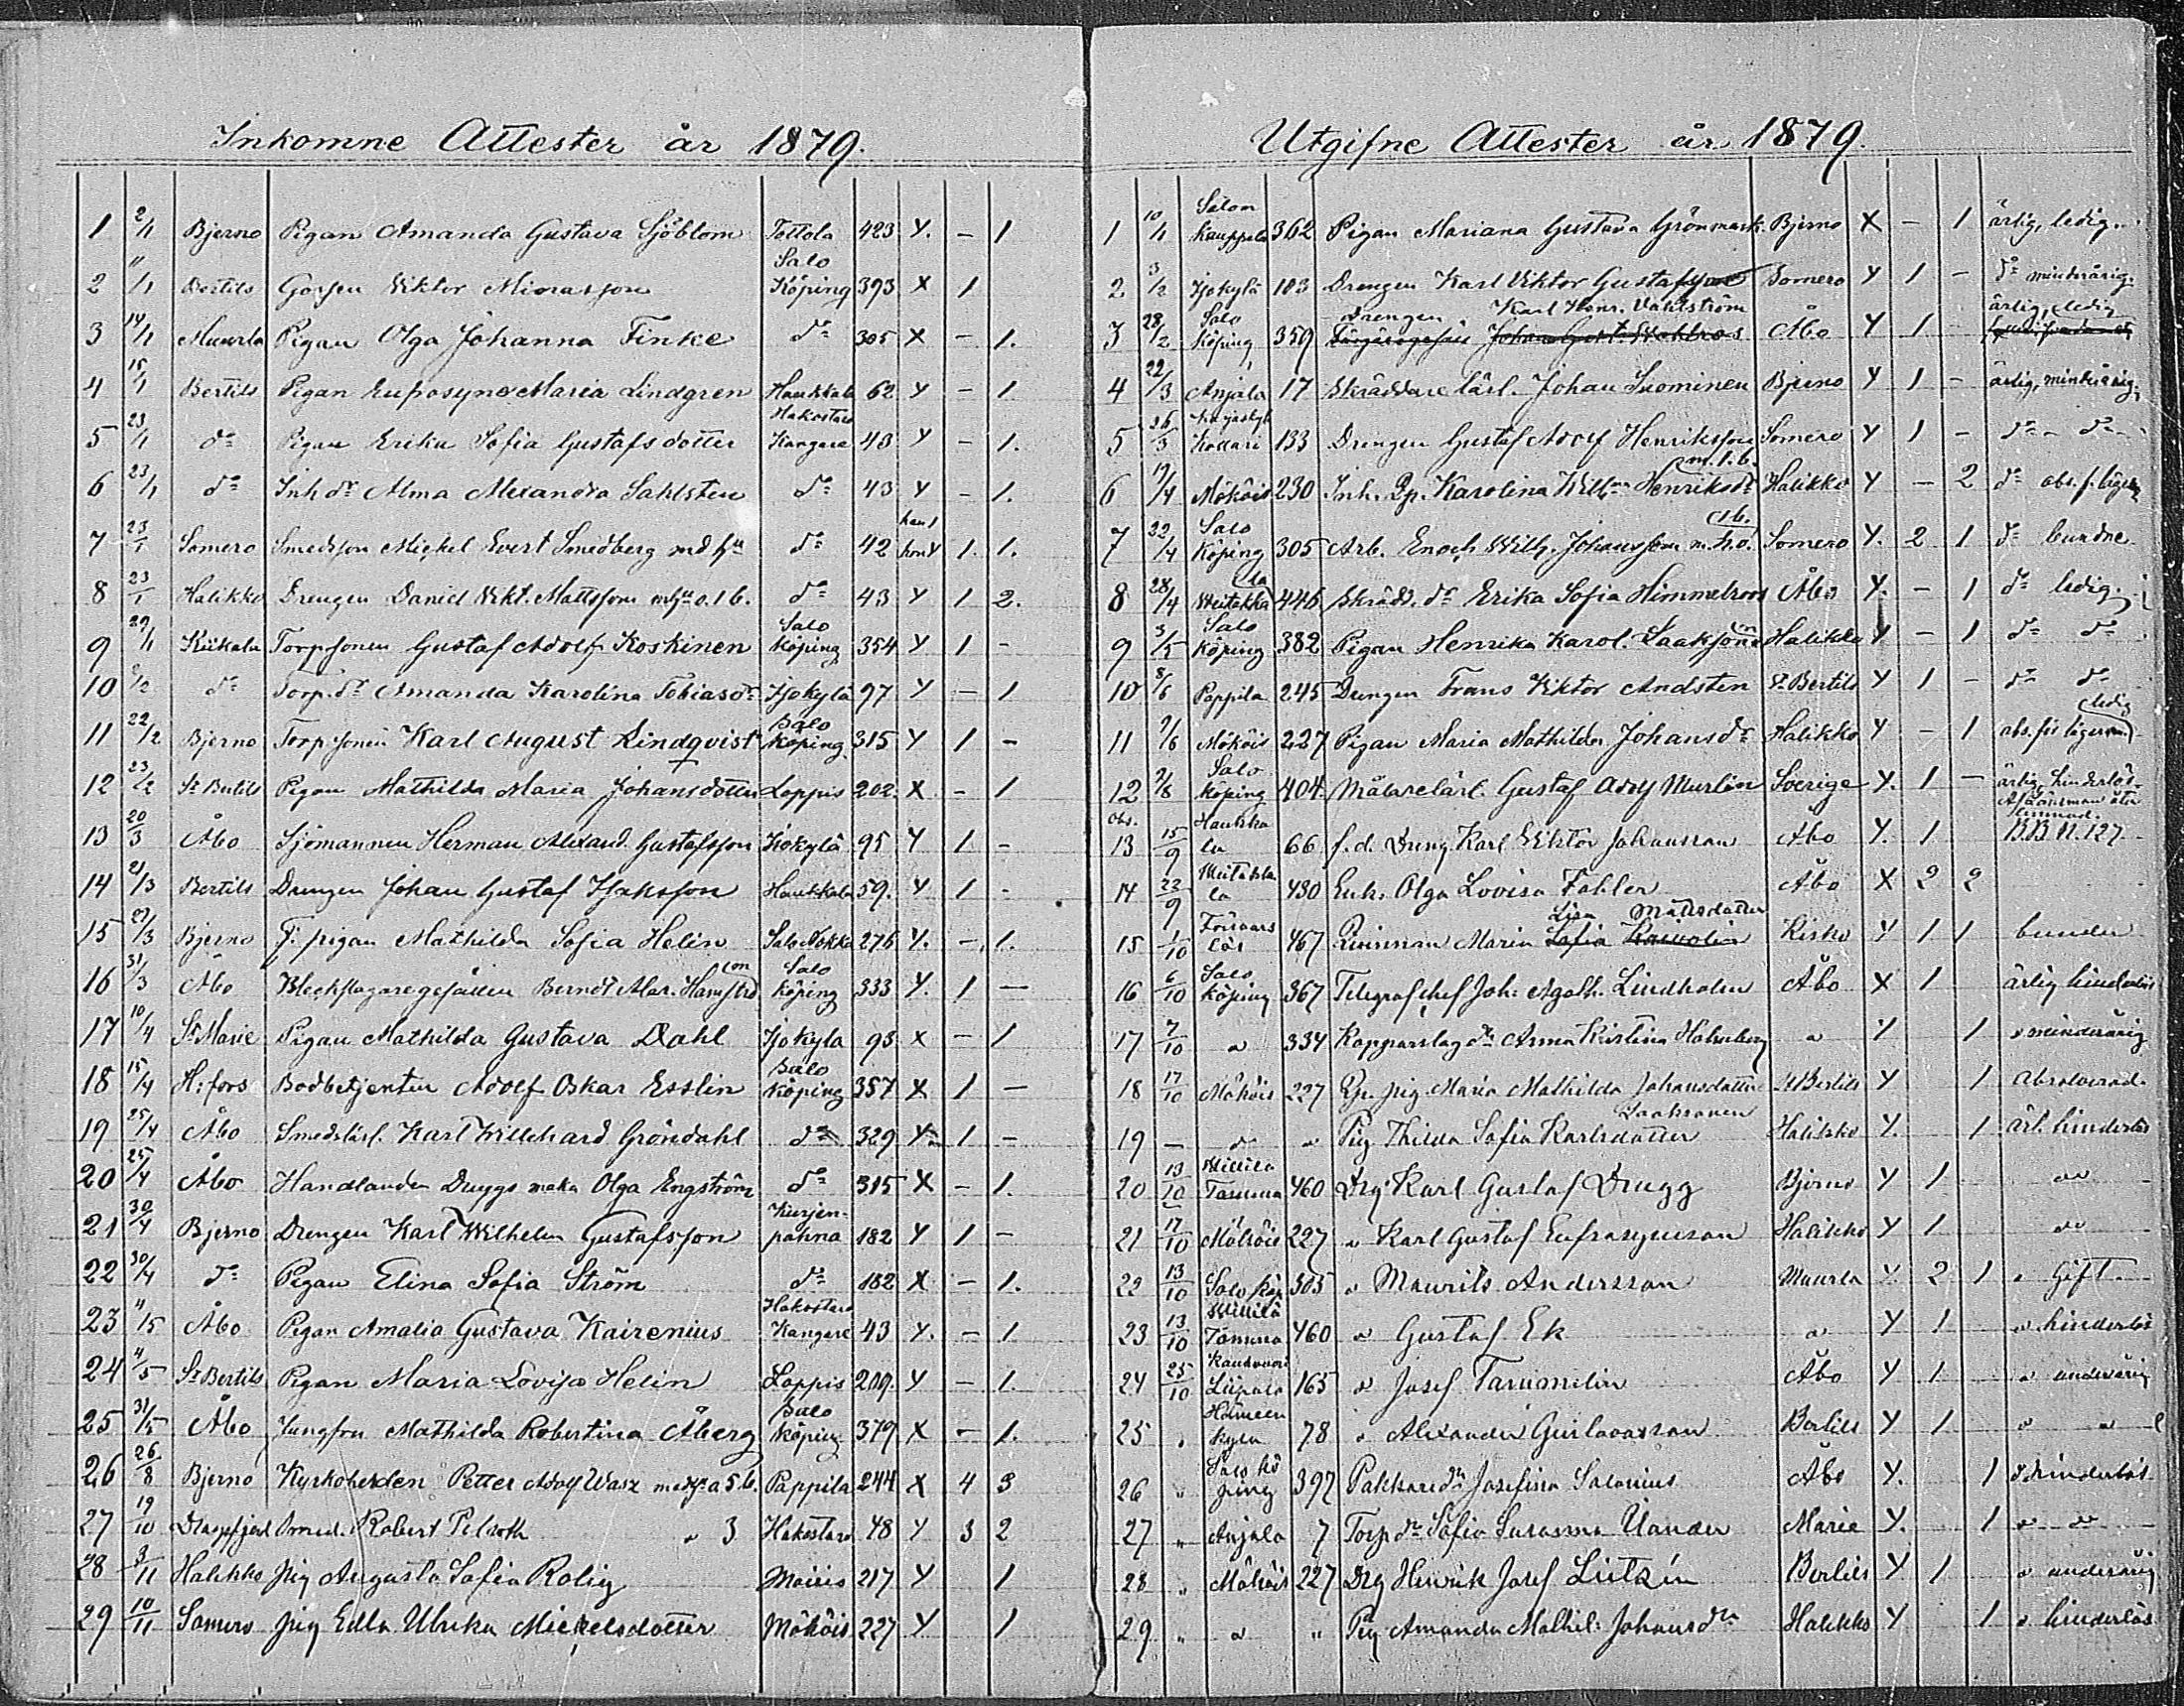 Inkomne Attester år 1879.
1 2/1 Bjerno Pigan Amanda Gustava Sjöblom Tottola 423 Y. – 1
2 "/1 Bertils Viktor Salo Köping 393 X 1
3 14/1 Muurla Pigan Olga Johanna Finke do 305 X – 1.
4 15/1 Bertils Pigan Euposyne Maria Lindgren Haukkala 62 Y – 1.
5 23/1 do Pigan Erika Sofia Gustafsdotter Hakostaro Kangare 43 Y – 1.
6 23/1 do Inh dr Alma Alexandra Sahlsten do 43 Y – 1.
7 23/1 Somero Smedsson Michel Evert Smedberg md hu do 42 han 1 hon Y 1. 1.
8 23/1 Halikko Drengen Daniel Vikt. Mattsson m hu o. 1 b. do 43 Y 1 2.
9 29/1 Kiikala Torpsonen Gustaf Adolf Koskinen Salo Köping 354 Y 1 –
10 /2 do Torp. dr Amanda Karolina Tobiasdr Ijokylä 97 Y – 1
11 22/2 Bjerno Torpsonen Karl August Lindqvist Salo Köping 315 Y 1 –
12 23/2 St Bertils Pigan Mathilda Maria Johansdotter Loppis 202. X – 1
13 20/3 Åbo Sjömannen Herman Alexand. Gustafsson Ijokylä 95 Y 1 –
14 21/3 Bertils Drengen Johan Gustaf Isaksson Haukkala 59. Y 1 –
15 29/3 Bjerno F: pigan Mathilda Sofia Helin Salo Nokka 276 Y. – 1.
16 31/3 Åbo Bleckslagaregesällen Berndt Alex. Salo Köping 333 Y. 1 –
17 10/4 St Marie Pigan Mathilda Gustava Dahl Ijokyla 98 X – 1
18 15/4 H:fors Bodbetjenten Adolf Oskar Esslin Salo Köping 357 X 1 –
19 25/4 Åbo Smedslärl. Karl Willehard Gröndahl do 329 Y 1 –
20 25/4 Åbo Handlanden Duggs maka Olga Engström do 315 X – 1.
21 30/4 Bjerno Drengen Karl Wilhelm Gustafsson Kurjenpahna 182 Y 1 –
22 30/4 do Pigan Elina Sofia Ström do 182 X – 1.
23 "/5 Åbo Pigan Amalia Gustava Kairenius Hakostaro Kangare 43 Y. – 1
24 "/5 St Bertils Pigan Maria Lovisa Helin Loppis 209. Y – 1.
25 31/5 Åbo Jungfru Mathilda Robertina Åberg Salo Köping 379 X – 1.
26 26/8 Bjerno Kyrkoherden Petter Adolf Wasz m. hu o 5 b. Pappila 244 X 4 3
27 19/10 Dragsfjerd Smed. Robert " 3 Hakostaro 48 Y 3 2
28 3/11 Halikko Pig Augusta Sofia Rolig Moisio 217 Y 1
29 10/11 Somero pig Edla Ulrika Mickelsdotter Mököis 227 Y 1
Utgifne Attester år 1879.
1 10/1 Salon Kauppala 362 Pigan Mariana Gustava Grönmark Bjerno X – 1 ärlig, ledig.
2 3/2 Ijokylä 103 Drengen Karl Viktor Gustafsson Somero Y 1 – do minderårig.
3 28/2 Salo Köping 359 Drengen Karl Henr. Vahlström Åbo Y 1 – ärlig, ledig
4 22/3 Anjala 17 Skräddare lärl. Johan Suominen Bjerno Y 1 – ärlig, minderårig.
5 26/3 Kottari 133 Drengen Gustaf Adolf Henriksson Somero Y 1 – do – do –
6 19/4 Mököis 230 Inh. Qp. Karolina Wilhna Henriksdr m. 1. b. Halikko Y – 2 do abs. f. läger
7 22/4 Salo Köping 305 Arb. Enoch Wilh. Johansson m. h. o. 1 b. Somero Y. 2 1 do bundne
8 28/4 446 Skrädd. dr Erika Sofia Himmelroos Åbo Y. – 1 do ledig.
9 3/5 Salo Köping 382 Pigan Henrika Karol. Halikko Y – 1 do do
10 8/6 Pappila 245 Drengen Frans Viktor Andsten St Bertils Y 1 – do do
11 9/6 Mököis 227 Pigan Maria Mathilda Johansdr Halikko Y – 1 ledig abs. för lägersm.
12 2/8 Salo Köping 404 Målarelärl. Gustaf Adolf Murlin Sverige Y. 1 – ärlig, hinderlös
obs.
13 15/9 Haukkala 66 f. d. Dreng Karl Viktor Johansson Åbo Y. 1 B.B. N. 127
14 22/9 430 Enk. Olga Lovisa Fahler Åbo X 2 2
15 1/10 467 Qvinnan Maria Lisa Mattsdotter Kisko Y 1 1 bunden
16 6/10 Salo Köping 367 Telegrafchef Joh. Agath. Lindholm Åbo X 1 ärlig hinderlös
17 7/10 " 334 Kopparslag dr Anna Kristina Holmberg " Y 1 " minderårig
18 17/10 Mököis 227 Qp. pig Maria Mathilda Johansdotter St Bertils Y 1 Absolverad.
19 – " " Pig Thilda Sofia Karlsdotter Halikko Y. 1 ärl. hinderlös
20 13/10 Willilä Tamma 460 Drg Karl Gustaf Drugg Bjerno Y 1 "
21 17/10 Mököis 227 " Karl Gustaf Eufrasynsson Halikko Y 1 "
22 13/10 Salo köp 305 " Maurits Andersson Muurla Y. 2 1 " Gift.
23 13/10 Willilä Tamma 460 " Gustaf Ek " Y 1 " hinderlös
24 25/10 Liipala 165 " Josef Tarumelin Åbo Y 1
25 " Hämeenkylä 78 " Alexander Gustavsson Bertils Y 1 " "
26 " Salo köping 397 Pakkaredr Josefina Salonius Åbo Y. 1 " hinderlös
27 " Anjala 7 Torp dr Sofia Susanna Marie Y. 1 " "
28 " Mököis 227 Drg Henrik Josef Bertils Y 1
29 " " " Pig Amanda Mathil. Johansdr Halikko Y 1 " hinderlös